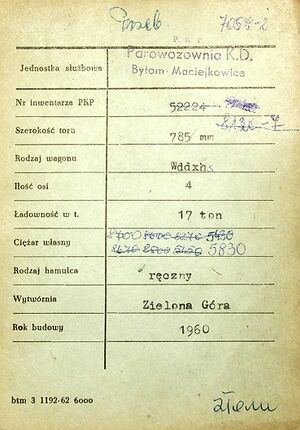 Przeb. 7058-2
P K P
Parowozownia K.D.
Jednostka służbowa Bytom-Maciejkowice
Nr inwentarza PKP 52224
8120-7
Szerokość toru 785 mm
Rodzaj wagonu Wddxhs
Ilość osi 4
Ładowność w t. 17 ton
Ciężar własny 5430
5830
Rodzaj hamulca ręczny
Wytwórnia Zielona Góra
Rok budowy 1960
btm 3 1192-62 6000